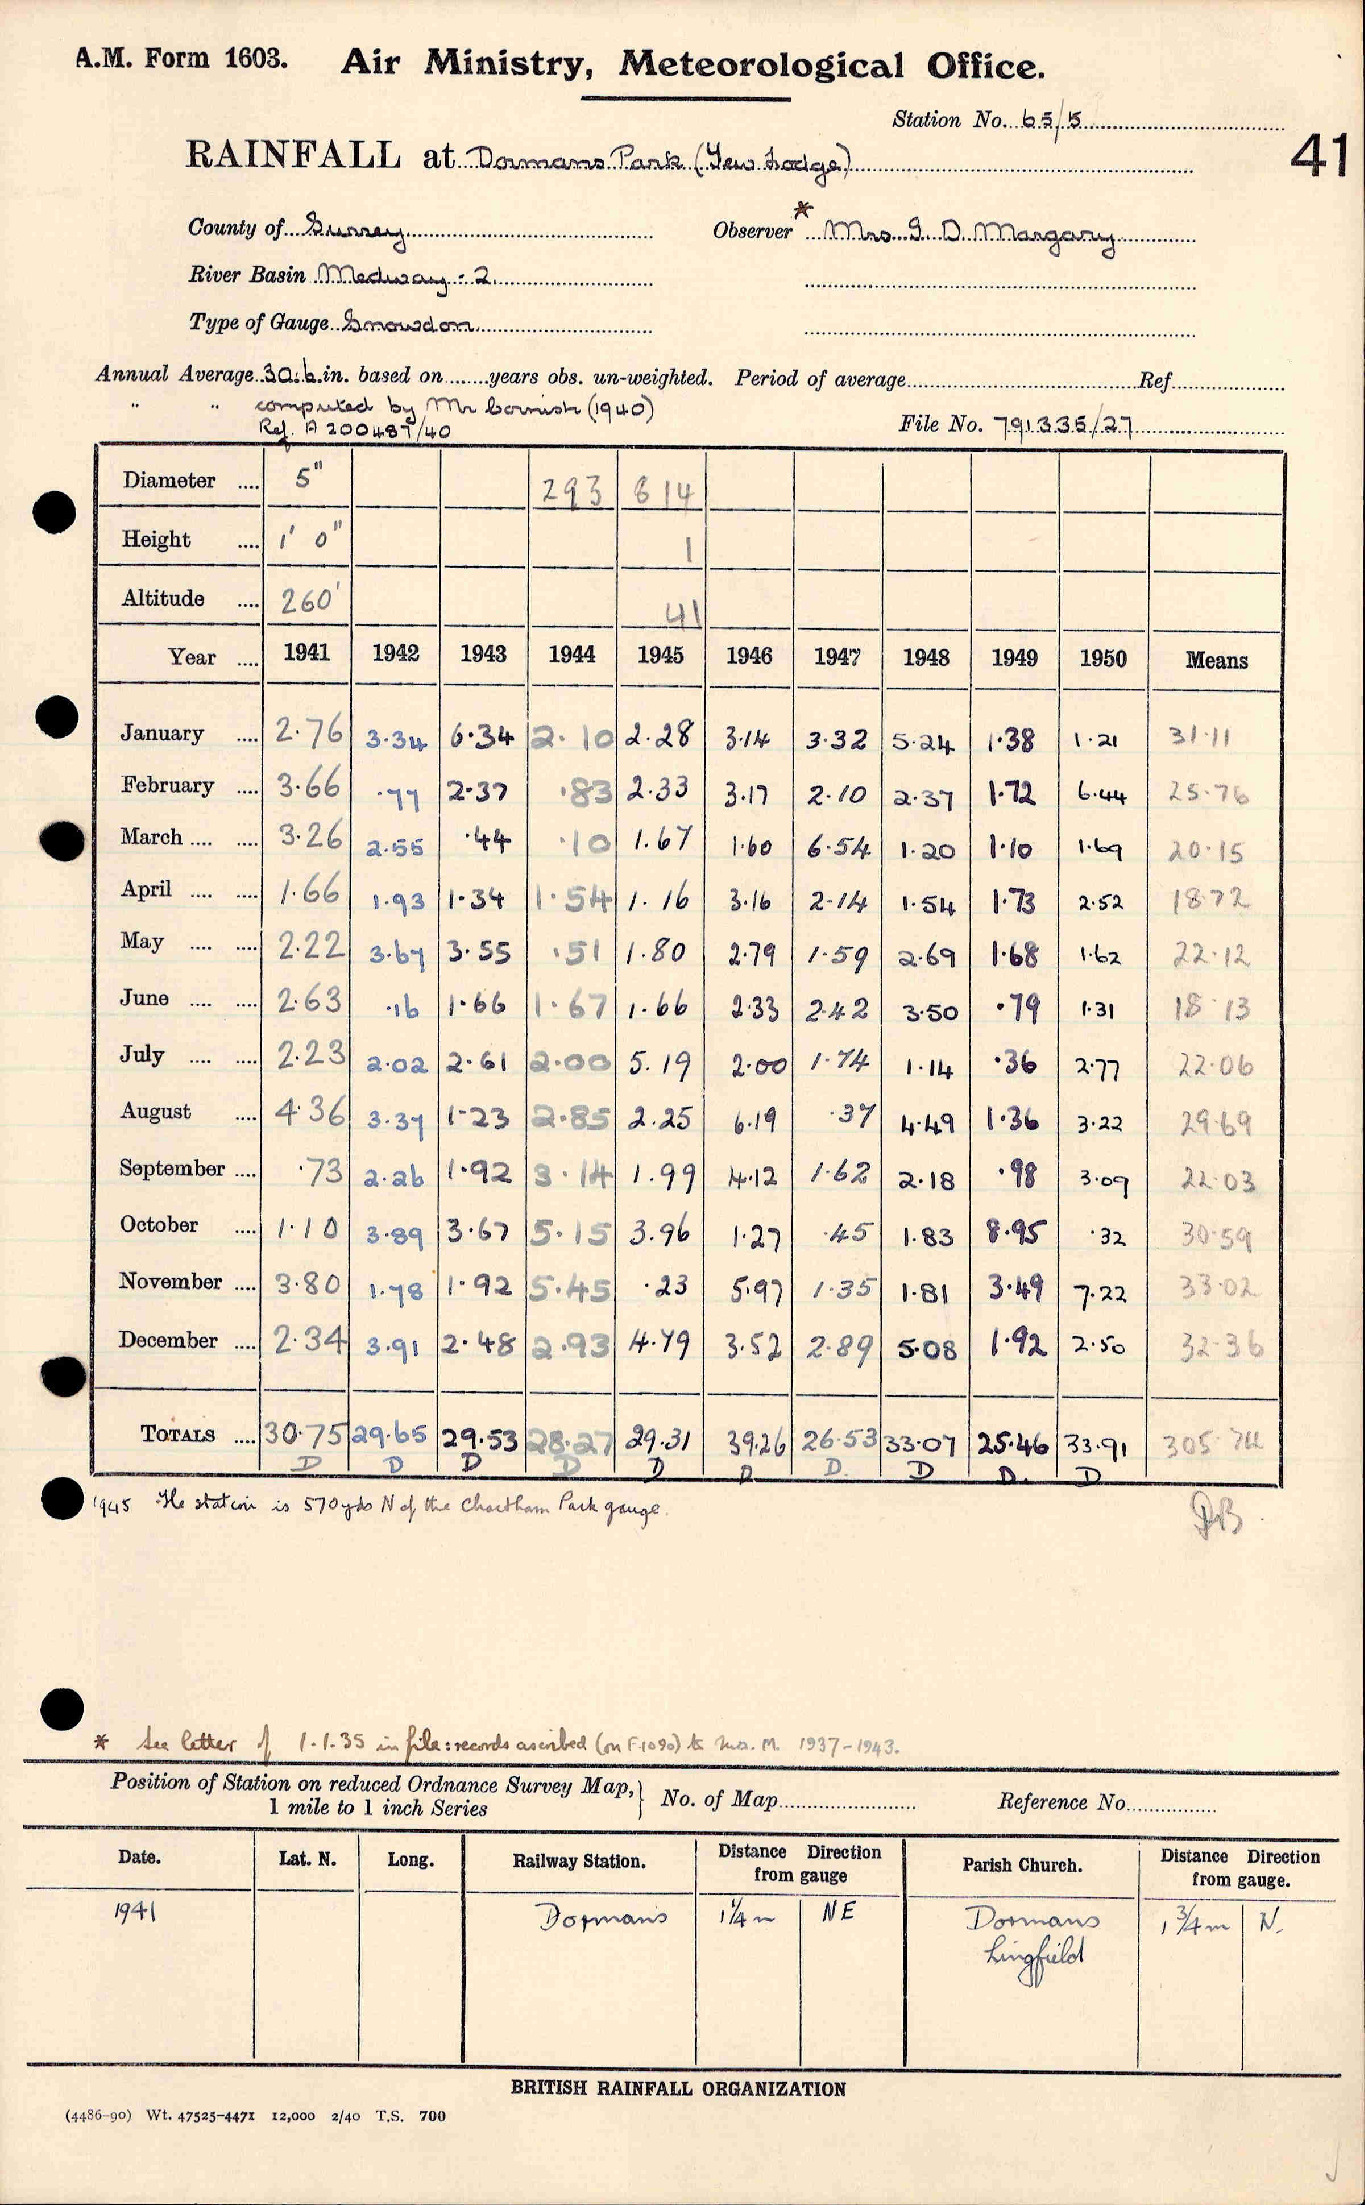 A.M. Form 1603. Air Ministry, Meteorological Office.
Station No. 65/15
41
RAINFALL at Dormans Park (Yew Lodge)
County of Surrey Observer * Mrs I. D. Margary
River Basin Medway - 2
Type of Gauge Snowdon
Annual Average 30.6 in. based on ........ years obs. un-weighted. Period of average ........ Ref ........
" " computed by Mr Cornish (1940)
Ref. A 200487/40 File No. 791335/27
Diameter .... 5" 293 614
Height .... 1' 0" 1
Altitude .... 260' 41
Year .... 1941 1942 1943 1944 1945 1946 1947 1948 1949 1950 Means
January .... 2.76 3.34 6.34 2.10 2.28 3.14 3.32 5.24 1.38 1.21 31.11
February .... 3.66 .77 2.37 .83 2.33 3.17 2.10 2.37 1.72 6.44 25.76
March .... .... 3.26 2.55 .44 .10 1.67 1.60 6.54 1.20 1.10 1.69 20.15
April .... .... 1.66 1.93 1.34 1.54 1.16 3.16 2.14 1.54 1.73 2.52 18.72
May .... .... 2.22 3.67 3.55 .51 1.80 2.79 1.59 2.69 1.68 1.62 22.12
June .... .... 2.63 .16 1.66 1.67 1.66 2.33 2.42 3.50 .79 1.31 18.13
July .... .... 2.23 2.02 2.61 2.00 5.19 2.00 1.74 1.14 .36 2.77 22.06
August .... 4.36 3.37 1.23 2.85 2.25 6.19 .37 4.49 1.36 3.22 29.69
September .... .73 2.26 1.92 3.14 1.99 4.12 1.62 2.18 .98 3.09 22.03
October .... 1.10 3.89 3.67 5.15 3.96 1.27 .45 1.83 8.95 .32 30.59
November .... 3.80 1.78 1.92 5.45 .23 5.97 1.35 1.81 3.49 7.22 33.02
December .... 2.34 3.91 2.48 2.93 4.79 3.52 2.89 5.08 1.92 2.50 32.36
TOTALS .... 30.75 29.65 29.53 28.27 29.31 39.26 26.53 33.07 25.46 33.91 305.74
D D D D D D D. D D. D
1945 The station is 570 yds N of the Chartham Park gauge.
* See letter of 1.1.35 in file: records ascribed (on F1090) to Mrs. M. 1937-1943.
Position of Station on reduced Ordnance Survey Map, 1 mile to 1 inch Series } No. of Map ........ Reference No. ........
Date. Lat. N. Long. Railway Station. Distance Direction from gauge Parish Church. Distance Direction from gauge.
1941 Dormans 1¼ m NE Dormans 1¾ m N.
Lingfield
BRITISH RAINFALL ORGANIZATION
(4486-90) Wt. 47525-4471 12,000 2/40 T.S. 700